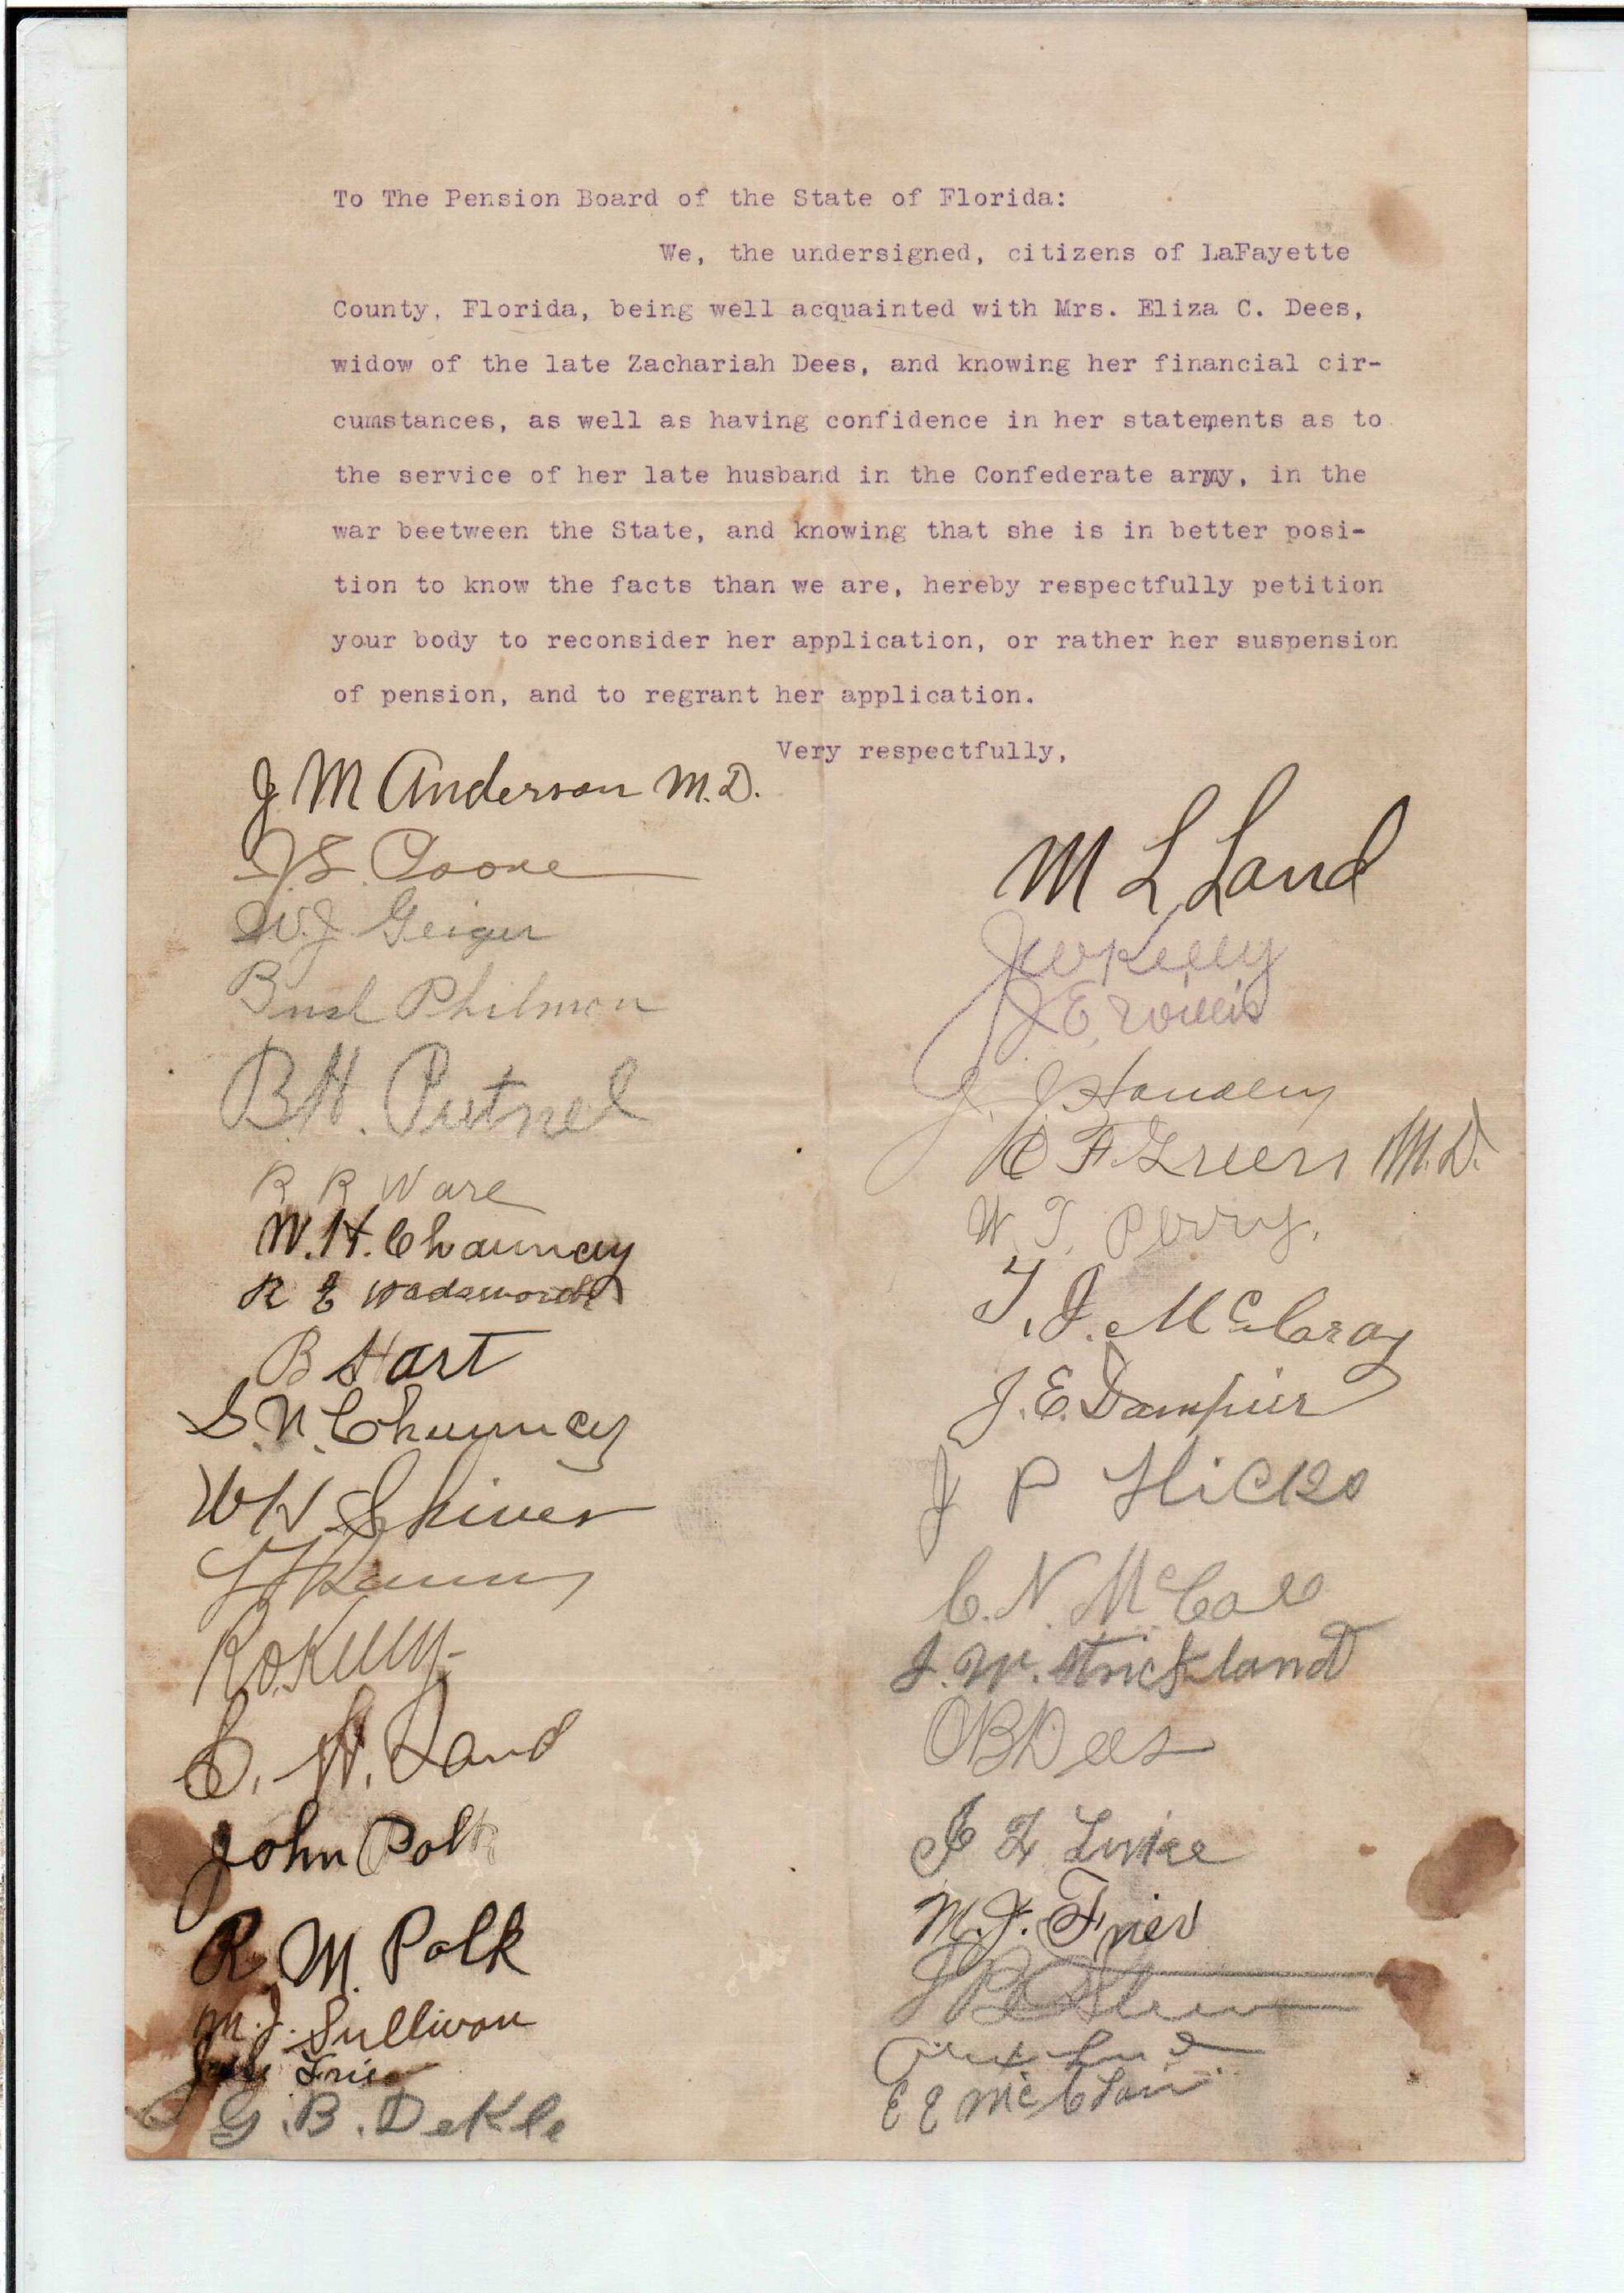 To The Pension Board of the State of Florida:
We, the undersigned, citizens of LaFayette
County, Florida, being well acquainted with Mrs. Eliza C. Dees,
widow of the late Zachariah Dees, and knowing her financial cir-
cumstances, as well as having confidence in her statements as to
the service of her late husband in the Confederate army, in the
war beetween the State, and knowing that she is in better posi-
tion to know the facts than we are, hereby respectfully petition
your body to reconsider her application, or rather her suspension
of pension, and to regrant her application.
Very respectfully,
J. M Anderson M.D.
J.S.
W.J. Geiger
Philmon
B.H. Putnel
R R Ware
W.H. Chauncey
R E Wadsworth
B Hart
S.N. Chauncey
W H Shiver
R.O. Kelly
C. H. Land
John Polk
R. M. Polk
M.J. Sullivan
G.B. DeKle
M L Land
J W Kelly
J E, Willis
J. J.
F. Green M.D.
W. T. Perry.
T. J. McCray
J.E. Dampier
J P Hicks
C. N. McCall
J. W. Strickland
O B Dees
M. J. Frier
E E McClain